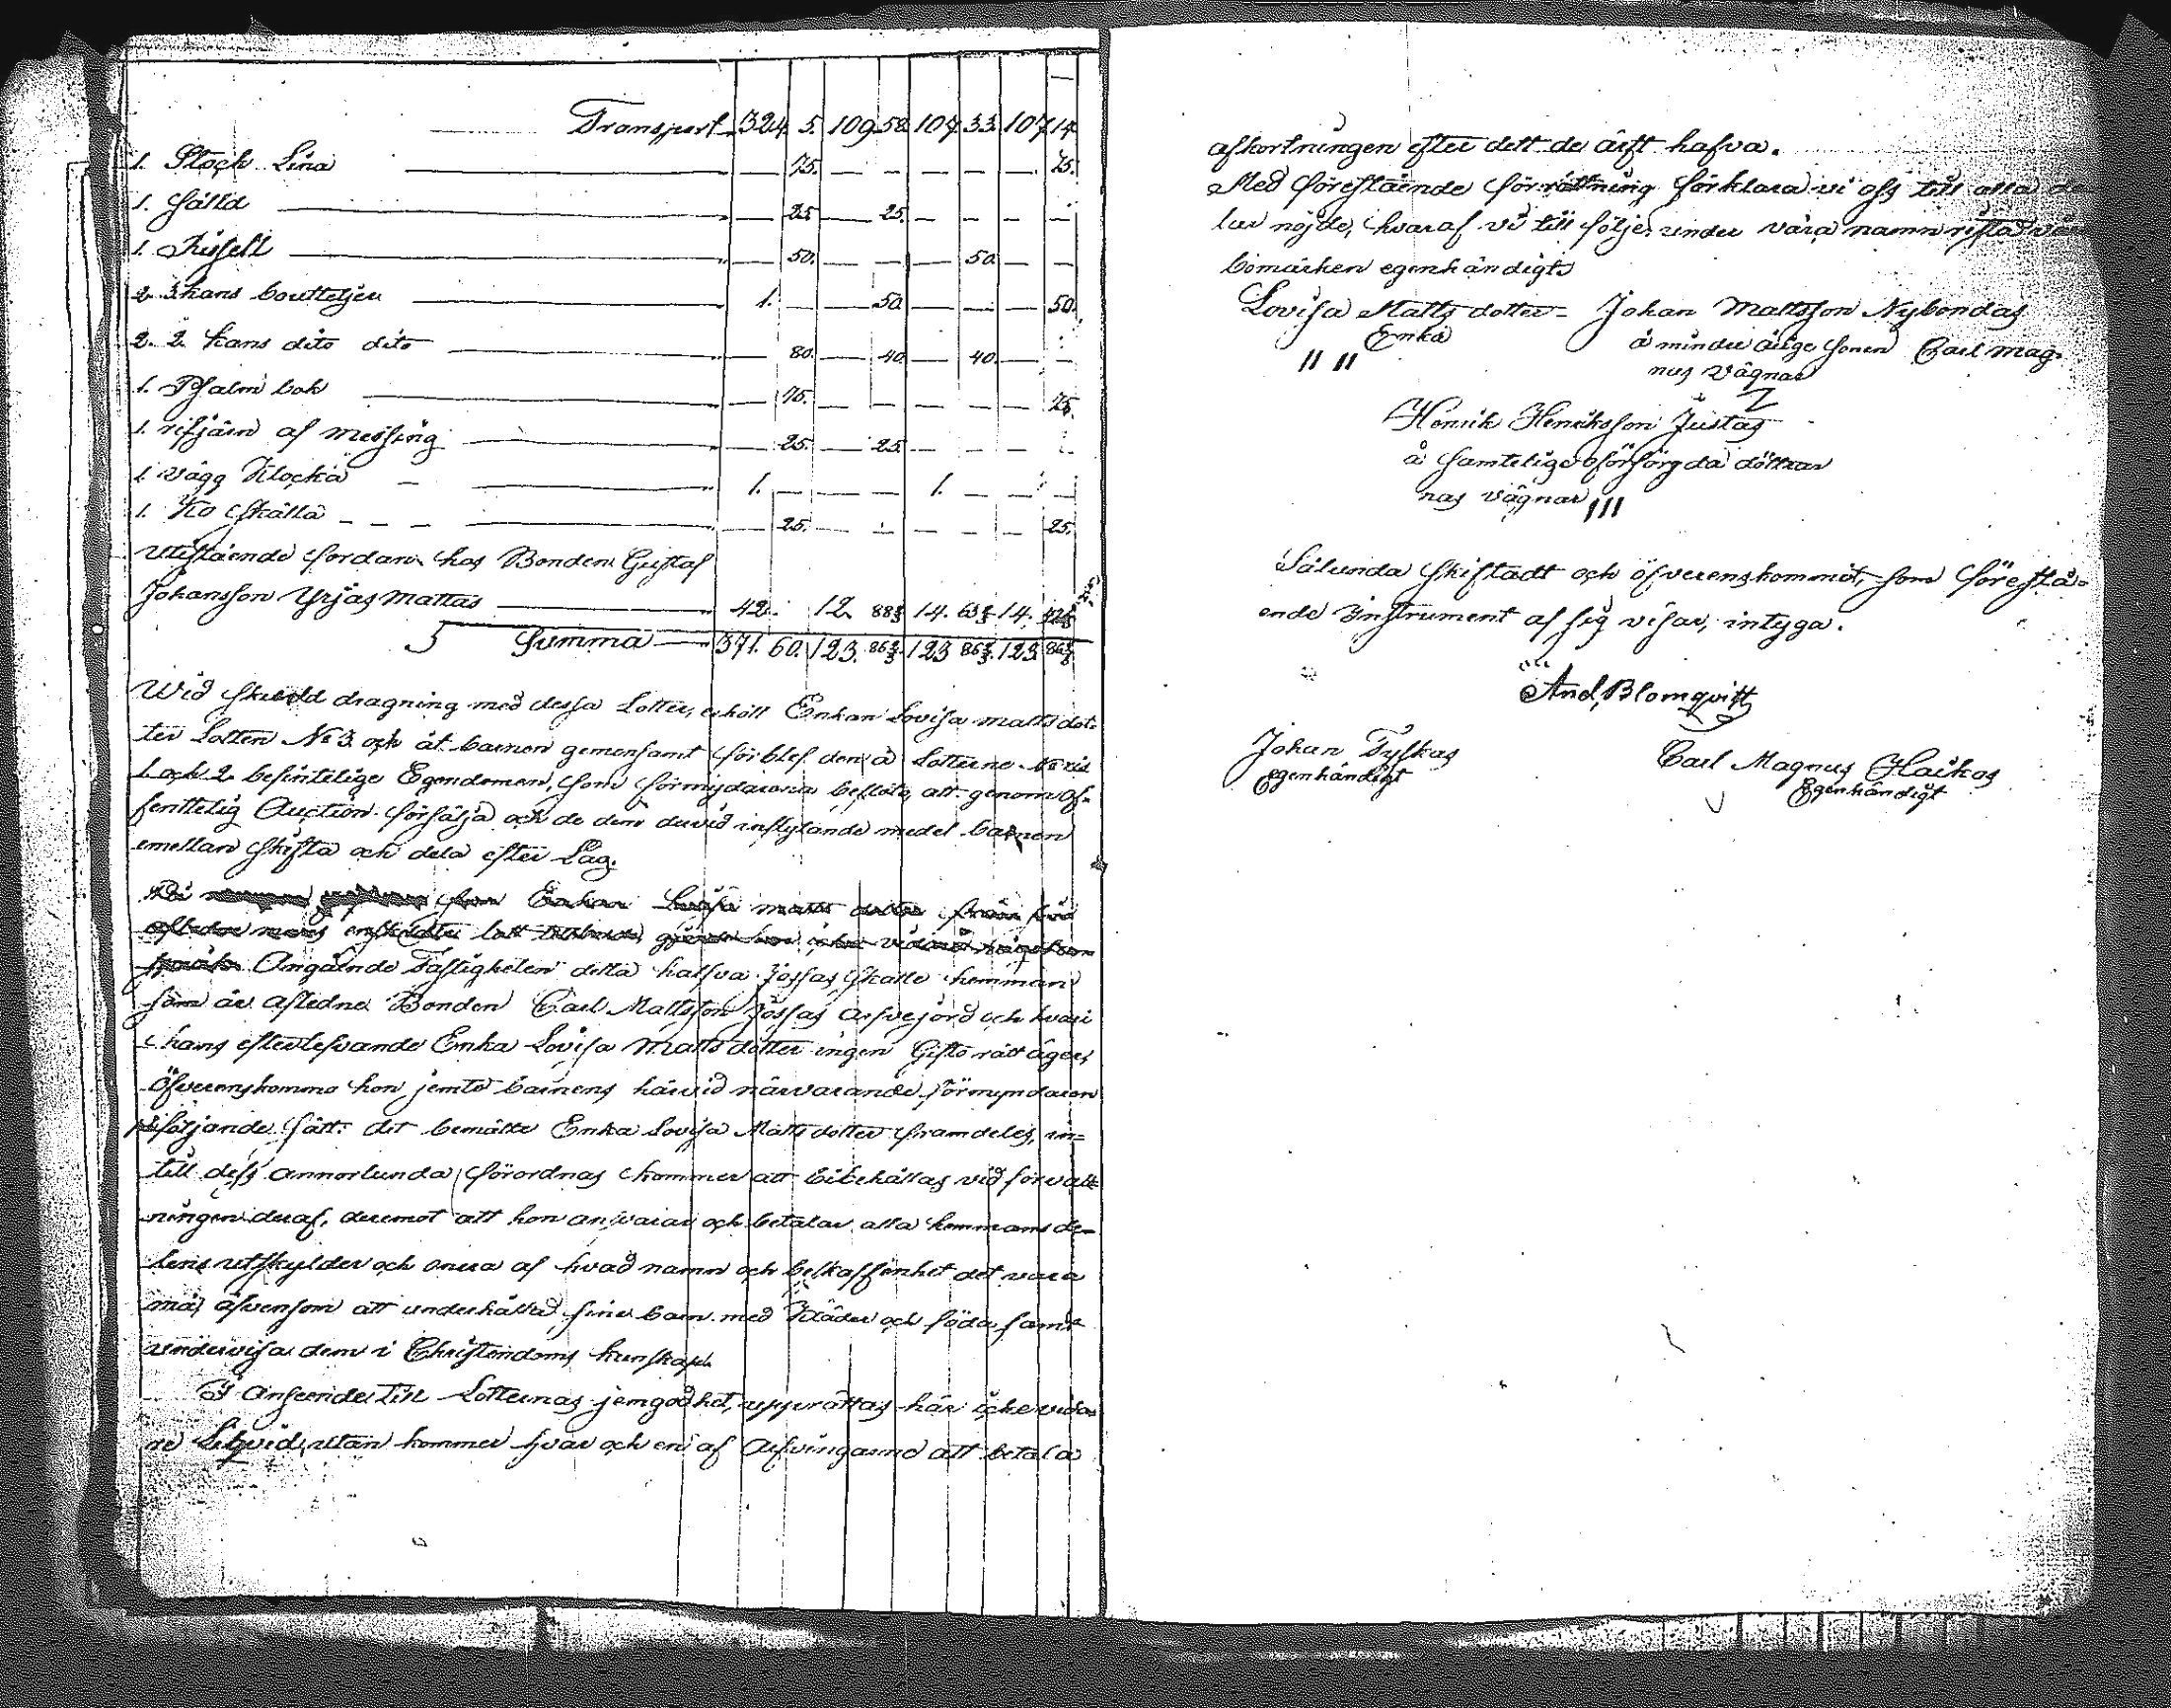 Transport 324. 5. 109. 58. 107. 33. 107. 14
1. Stock Lina — 75. — — — — — 75.
1. Fälld — 25 — 25. — — —
1. Kisell — 50. — — — 50. — —
2. 3 kans boutteljer 1. — — 50. — — — 50.
2. 2 kans dito dito — 80. — 40. — 40. — —
1. Psalm bok — 75. — — — — — 75.
1. rifjärn af messing — 25. — 25. — — —
1 Vägg Klocka 1. — — — 1. — — —
1. Ko skälla — 25. — — — — — 25.
Utestående fordran hos Bonden Gustaf
Johansson Yrjas Mattas 42. 12. 88⅔ 14. 63⅔ 14.
Summa 371. 60. 123. 86⅔. 123 86⅔. 123 86⅔
Wid skedd dragning med dessa Lotter, erhöll Enkan Lovisa Matts dot-
ter Lotten No 3. och åt barnen gemensamt förblef den å Lotterne No
1 och 2 befintelige Egendomen, som förmydarena beslöto, att genom of-
fentlig Auction försälja och de dervid inflytande medel barnen
emellan skifta och dela efter Lag.
Enkan Lovisa Matts dotter från sin
Angående Fastigheten detta halfva Jossas Skatte hemman
som är aflednе Bonden Carl Mattsson Jossas Arfvejord och hvari
hans efterlefvande Enka Lovisa Matts dotter ingen Gifto rätt äger,
öfverenskommo hon jemte barnens härvid närvarande förmyndaren
på följande sätt: det bemälte Enka Lovisa Matts dotter framdeles, in-
till dess annorlunda förordnas kommer att bibehållas vid förvalt-
ningen deraf, deremot att hon ansvarar och betalar alla hemmans de-
lens utskylder och onera af hvad namn och beskaffenhet det vara
må, äfvensom att underhålla sine barn med Kläder och föda samt
undervisa dem i Christendoms kunskap.
I Anseende till Lotternas jemgodhet, upprättas här icke vida-
re Liqvid, utan kommer hvar och en af Arfvingarne att betala
afkortningen efter dett de ärft hafva.
Med förestående förrättning förklara vi oss till alla de
lar nöjde, hvaraf vi till följe under våra namn rista våra
bomärken egenhändigt
Lovisa Matts dotter Johan Mattsson Nybondas
Enka å minder årige sonen Carl Mag-
nus Vägnar
Henrik Henriksson Justas
å samtelige oförsörgda döttrar
nas vägnar
Sålunda skiftadt och öfverenskommit, som förestå-
ende Instrument af sig visar, intyga.
And, Blomqvist
Johan Tyskas Carl Magnus Haikas
Egenhändigt Egenhändigt